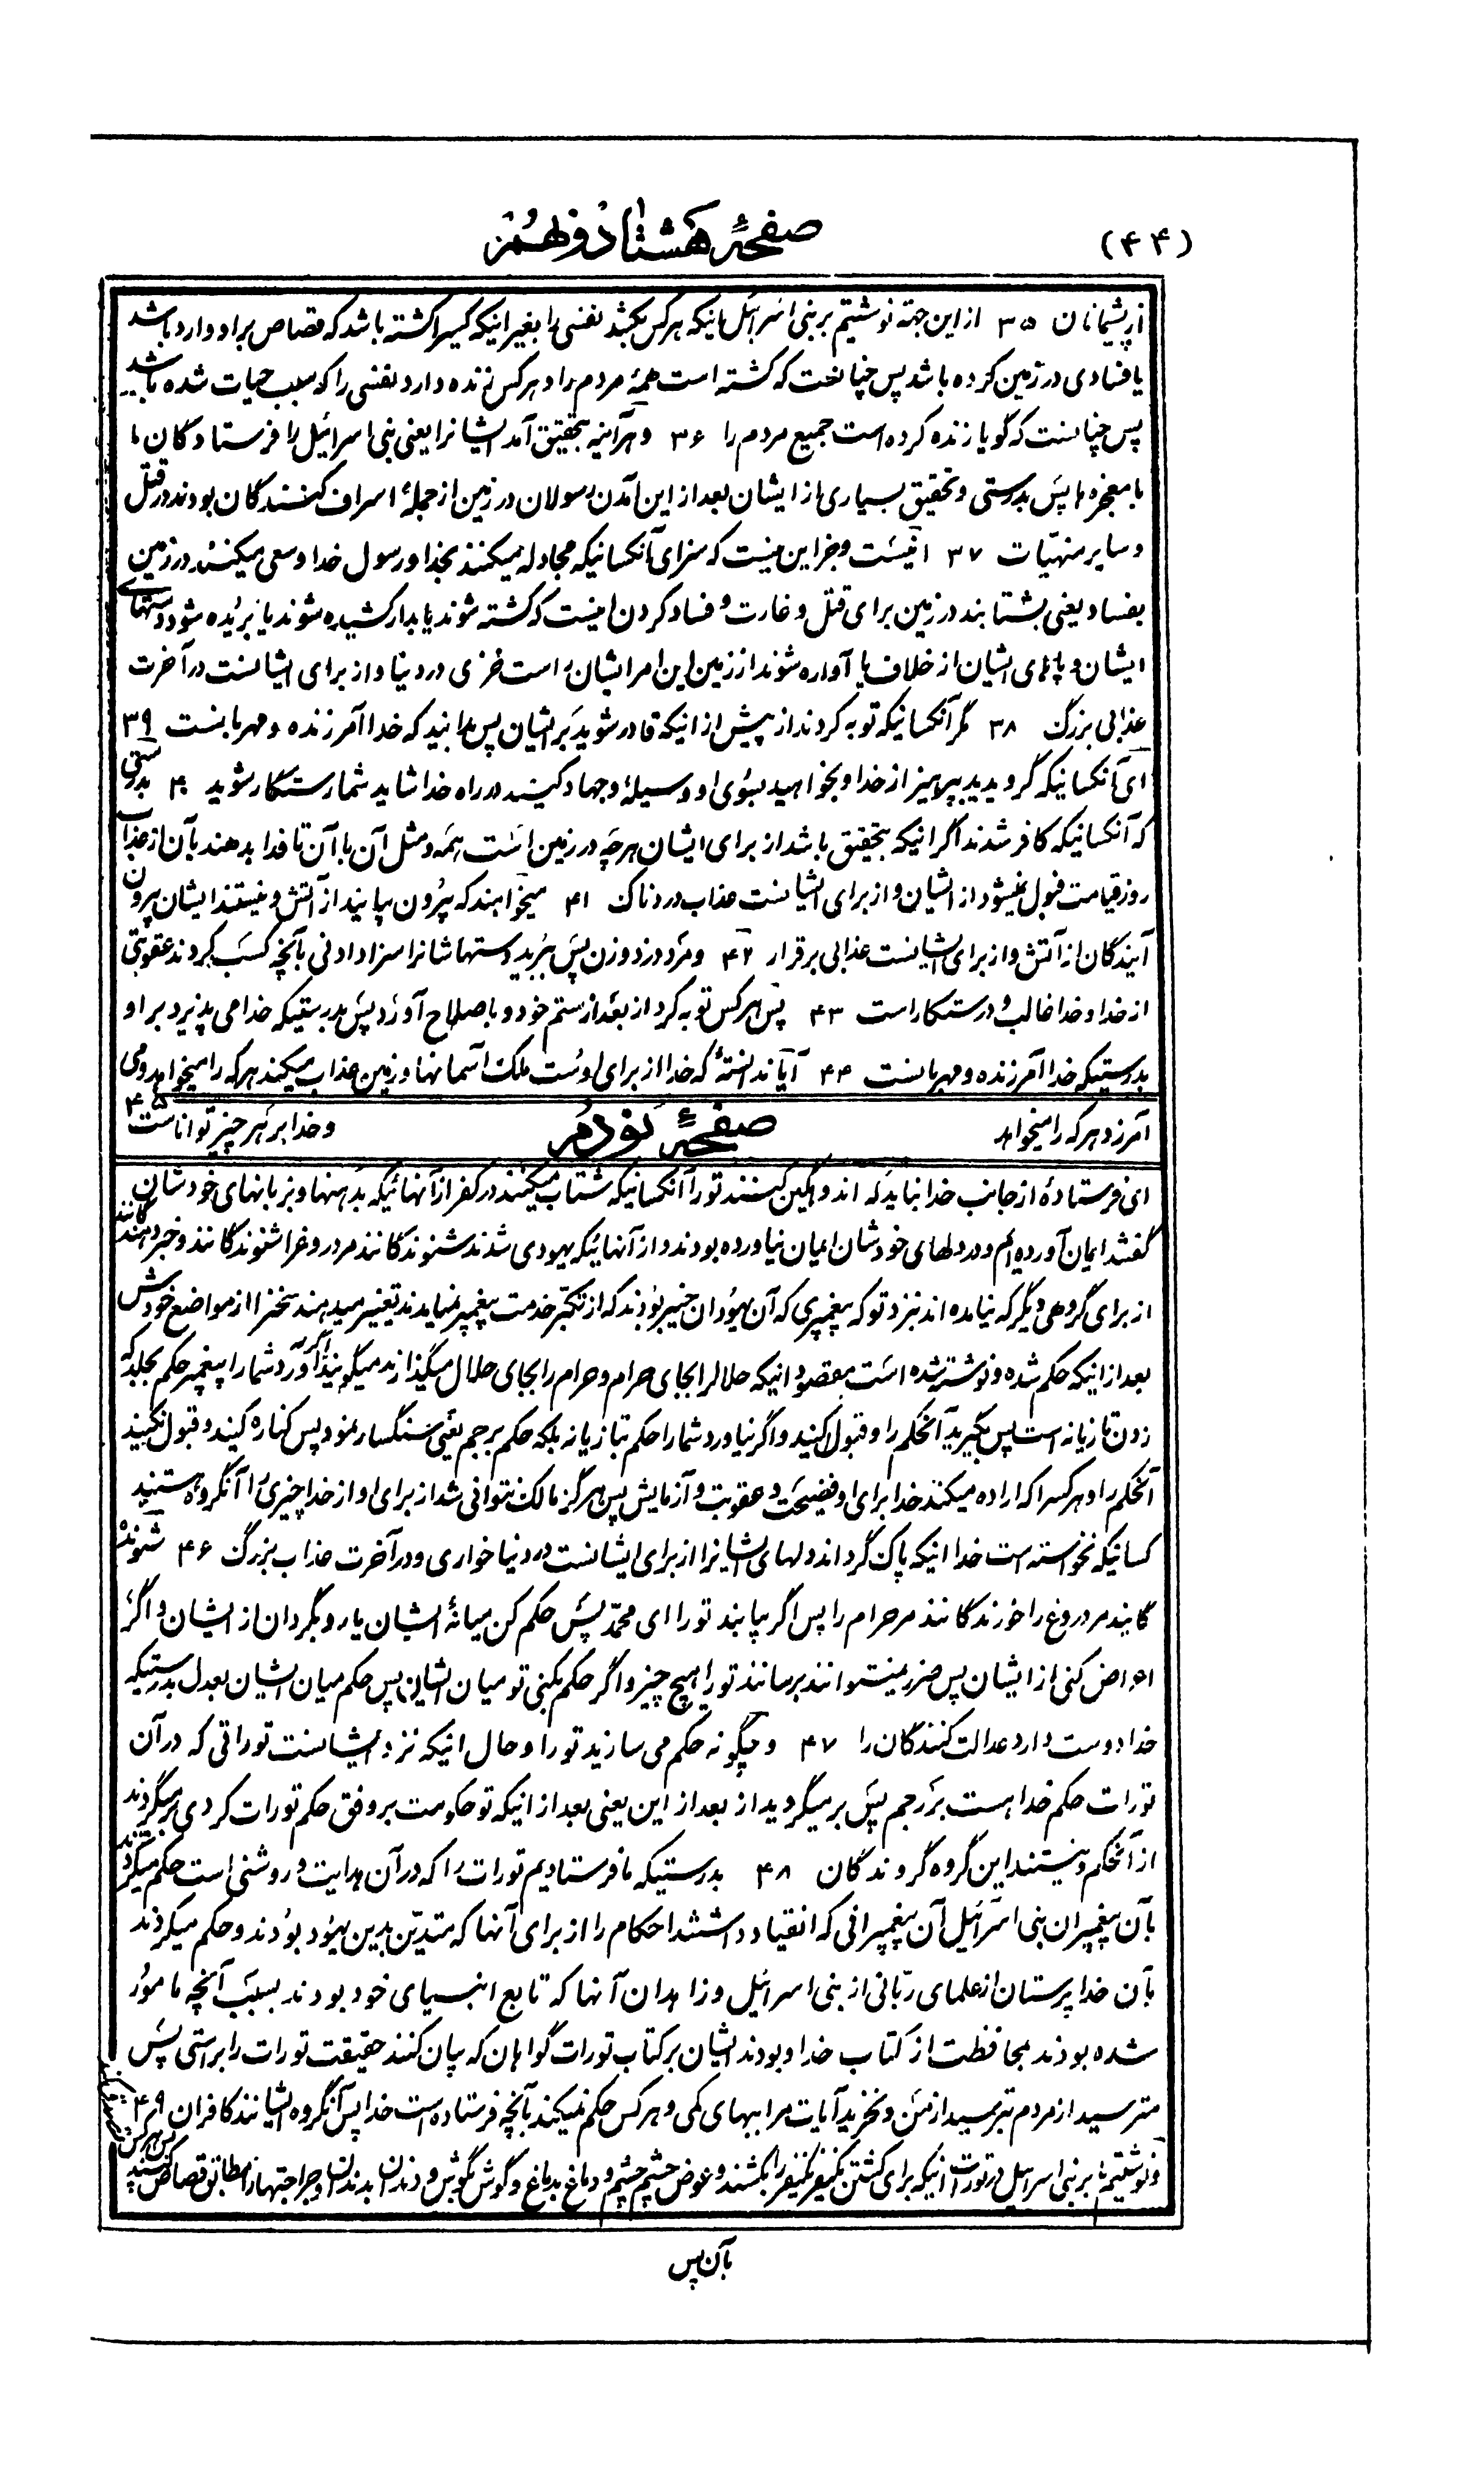 (۴۴)
صفحهٔ هشتاد و نهم
از پشیمانان ۳۵ از این جهة نوشتیم بر بنی اسرائیل اینکه هر کس بکشد نفسی را بغیر اینکه کسیرا کشته باشد که قصاص بر او وارد باشد
یا فسادی در زمین کرده باشد پس چنانست که کشته است همهٔ مردم را و هر کس زنده دارد نفسی را که سبب حیات شده باشد
پس چنانست که گویا زنده کرده است جمیع مردم را ۳۶ و هر آینه بتحقیق آمد ایشانرا یعنی بنی اسرائیل را فرستادگان ما
با معجزه ها پس بدرستی و تحقیق بسیاری از ایشان بعد از این آمدن رسولان در زمین از جملهٔ اسراف کنندگان بودند در قتل
و سایر منهیّات ۳۷ اینست و جز این نیست که سزای آنکسانیکه مجادله میکنند بخدا و رسول خدا و سعی میکنند در زمین
بفساد یعنی بشتابند در زمین برای قتل و غارت و فساد کردن اینست که کشته شوند یا بدار کشیده شوند یا بریده شود دستهای
ایشان و پاهای ایشان از خلاف یا آواره شوند از زمین این امر ایشان راست خزی در دنیا و از برای ایشانست در آخرت
عذابی بزرگ ۳۸ مگر آنکسانیکه توبه کردند از پیش از اینکه قادر شوید بر ایشان پس بدانید که خدا آمرزنده و مهربانست ۳۹
ای آنکسانیکه گرویدید بپرهیز از خدا و بخواهید بسوی او وسیلهٔ و جهاد کنید در راه خدا شاید شما رستگار شوید ۴۰ بدرستی
که آنکسانیکه کافر شدند اگر اینکه بتحقیق باشد از برای ایشان هر چه در زمین است همه و مثل آن با آن تا فدا بدهند بآن از عذاب
روز قیامت قبول نمیشود از ایشان و از برای ایشانست عذاب دردناک ۴۱ میخواهند که بیرون بیایند از آتش و نیستند ایشان بیرون
آیندگان از آتش و از برای ایشانست عذابی برقرار ۴۲ و مرد دزد و زن پس ببرید دستهاشانرا سزا دادنی بآنچه کسب کردند عقوبتی
از خدا و خدا غالب و درستکار است ۴۳ پس هر کس توبه کرد از بعد از ستم خود و باصلاح آورد پس بدرستیکه خدا می پذیرد بر او
بدرستیکه خدا آمرزنده و مهربانست ۴۴ آیا ندانستهٔ که خدا از برای اوست ملک آسمانها و زمین عذاب میکند هر که را میخواهد و می
آمرزد هر که را میخواهد
صفحهٔ نودم
و خدا بر هر چیز تواناست ۴۵
ای فرستادهٔ از جانب خدا نباید که اندوهگین کنند تو را آنکسانیکه شتاب میکنند در کفر از آنهائیکه بدهنها و زبانهای خودشان
گفتند ایمان آورده ایم و در دلهای خودشان ایمان نیاورده بودند و از آنهائیکه یهودی شدند شنوندگانند مر دروغرا شنوندگانند و خبر دهندگانند
از برای گروهی دیگر که نیامده اند نزد تو که پیغمبری که آن یهودان خیبر بودند که از تکبّر خدمت پیغمبر نیامدند تغییر میدهند سخنرا از مواضع خودش
بعد از اینکه حکم شده و نوشته شده است مقصود اینکه حلالرا بجای حرام و حرام را بجای حلال میگذارند میگویند اگر آورد شما را پیغمبر حکم بجلد که
زدن تازیانه است پس بگیرید آنحکم را و قبول کنید و اگر نیاورد شما را حکم تازیانه بلکه حکم برجم یعنی سنگسار نمود پس کناره کنید و قبول نکنید
آنحکم را و هر کسرا که اراده میکند خدا برای او فضیحت و عقوبت و آزمایش پس هرگز مالک نتوانی شد از برای او از خدا چیزی را آنگروه هستند
کسانیکه نخواسته است خدا اینکه پاک گرداند دلهای ایشانرا از برای ایشانست در دنیا خواری و در آخرت عذاب بزرگ ۴۶ شنوند
گانند مر دروغ را خورندگانند مر حرام را پس اگر بیایند تو را ای محمّد پس حکم کن میانهٔ ایشان یا رو بگردان از ایشان و اگر
اعراض کنی از ایشان پس ضرر نمیتوانند برسانند تو را هیچ چیز و اگر حکم بکنی تو میان ایشان پس حکم میان ایشان بعدل بدرستیکه
خدا دوست دارد عدالت کنندگان را ۴۷ و چگونه حکم می سازید تو را و حال اینکه نزد ایشانست توراتی که در آن
تورات حکم خدا هست بر رجم پس بر میگردید از بعد از این یعنی بعد از اینکه تو حکومت بر وفق حکم تورات کردی بر میگردند
از آنحکم و نیستند این گروه گروندگان ۴۸ بدرستیکه ما فرستادیم تورات را که در آن هدایت و روشنی است حکم میکردند
بآن پیغمبران بنی اسرائیل آن پیغمبرانی که انقیاد داشتند احکام را از برای آنها که متدیّن بدین یهود بودند و حکم میکردند
بآن خدا پرستان از علمای ربّانی از بنی اسرائیل و زاهدان آنها که تابع انبیای خود بودند بسبب آنچه مامور
شده بودند بمحافظت از کتاب خدا و بودند ایشان بر کتاب تورات گواهان که بیان کنند حقیقت تورات را براستی پس
مترسید از مردم بترسید از من و نخرید آیات مرا ببهای کمی و هر کس حکم نمیکند بآنچه فرستاده است خدا پس آنگروه ایشانند کافران ۴۹
و نوشتیم ما بر بنی اسرائیل در تورات اینکه برای کشتن یکنفر یکنفر را بکشند و عوض چشم چشم و دماغ بدماغ و گوش بگوش و دندان بدندان و جراحتها را مطابق قصاص کنند پس هر کس
بآن پس